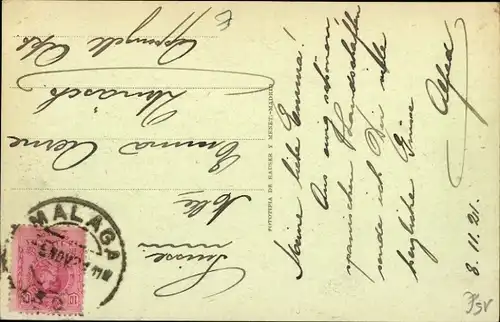 Meine liebe Emma!
Aus ewig schönen,
spanischen Landschaften
sende ich Dir viele
herzliche Grüsse
Alfred
8.11.21.
FOTOTIPIA DE HAUSER Y MENET.-MADRID
Mlle.
Emma Aerne
Urnäsch
Appenzell
Suisse
MALAGA
NOV
10